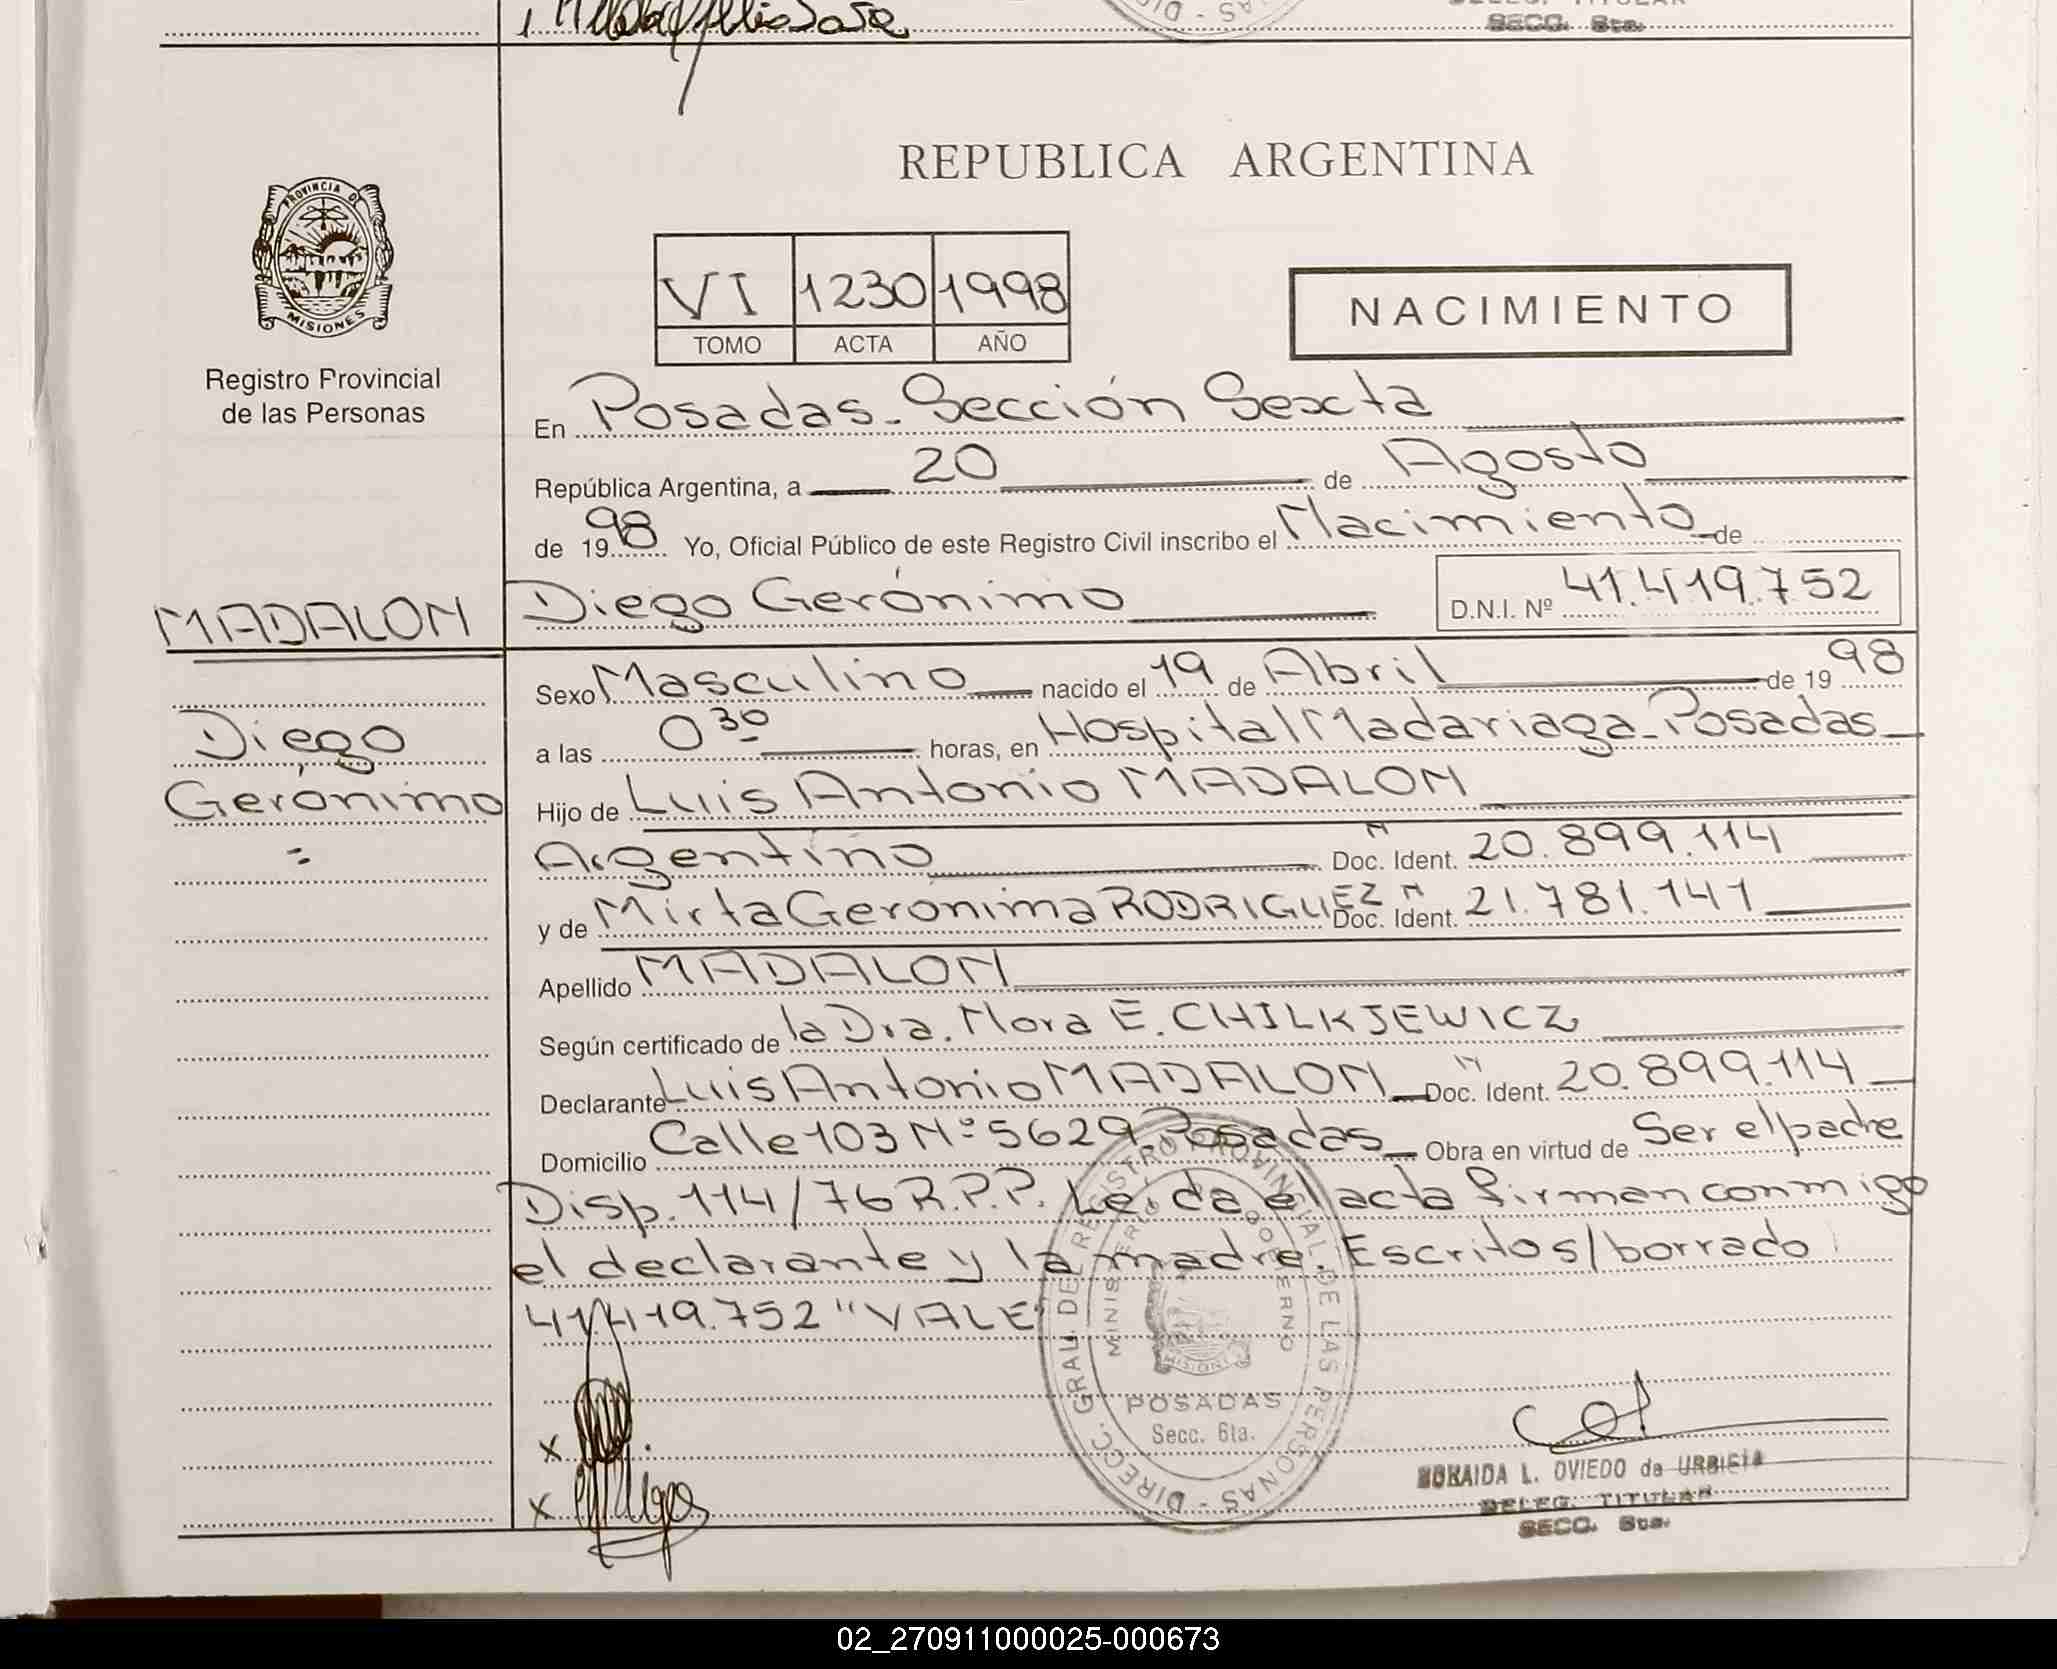 SECC. 6ta.
REPUBLICA ARGENTINA
PROVINCIA DE
MISIONES
Registro Provincial
de las Personas
VI 1230 1998
TOMO ACTA AÑO
NACIMIENTO
En Posadas - Sección Sexta
República Argentina, a 20 de Agosto
de 1998 Yo, Oficial Público de este Registro Civil inscribo el Nacimiento de
MADALON
Diego Gerónimo D.N.I. Nº 41.419.752
Sexo Masculino nacido el 19 de Abril de 1998
Diego
Gerónimo
a las 0 30 horas, en Hospital Madariaga - Posadas
Hijo de Luis Antonio MADALON
Argentino Doc. Ident. N 20.899.114
y de Mirta Gerónima RODRIGUEZ Doc. Ident. N 21.781.141
Apellido MADALON
Según certificado de la Dra. Nora E. CHILKJEWICZ
Declarante Luis Antonio MADALON Doc. Ident. N 20.899.114
Domicilio Calle 103 Nº 5629 Posadas Obra en virtud de Ser el padre
Disp. 114/76 R.P.P. Leida el acta firman conmigo
el declarante y la madre. Escritos/borrado:
41.419.752 "VALE"
DIRECC. GRAL. DEL REGISTRO PROVINCIAL DE LAS PERSONAS
MINISTERIO GOBIERNO
MISIONES
POSADAS
Secc. 6ta.
x
x
L. OVIEDO de
DELEG. TITULAR
SECC. 6ta.
02_270911000025-000673